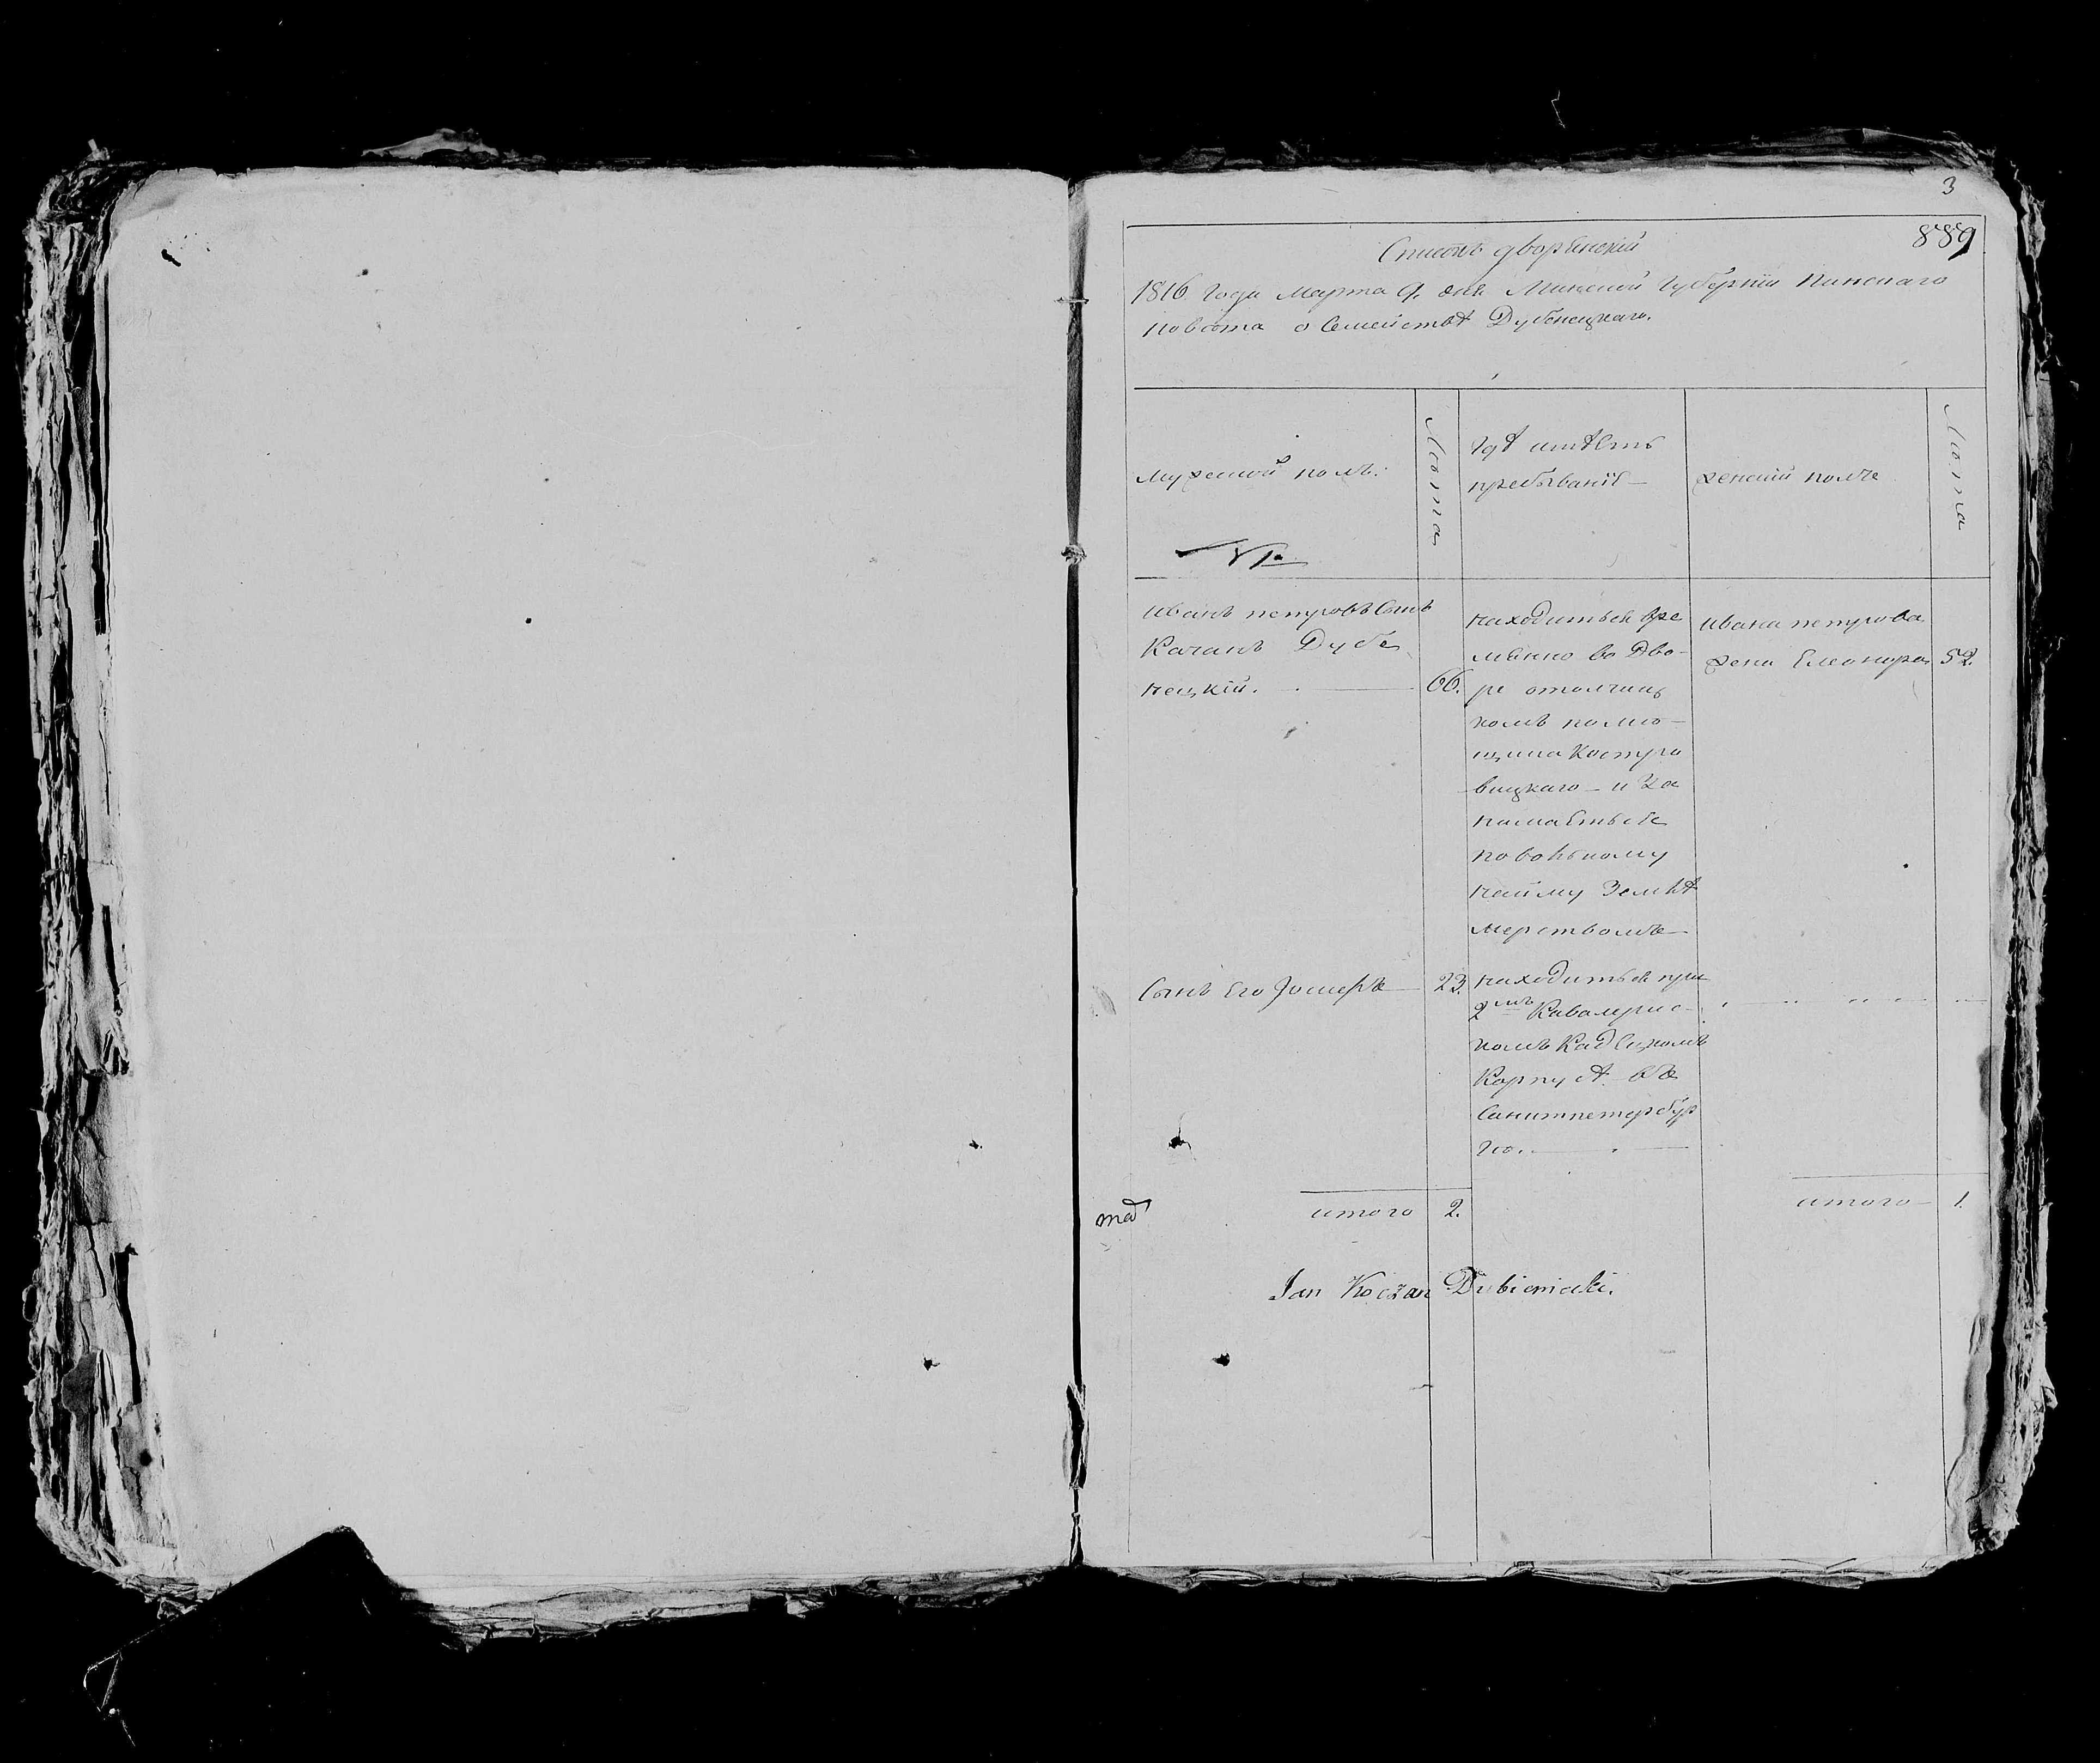 3
889
Списокъ дворянскій
1816 Года Марта 9. дня Минской Губерніи Пинскаго
повѣта о Семействѣ Дубенецкаго.
Мужеской полъ.
Лѣта
гдѣ имѣетъ
пребываніе —
женский полъ
Лѣта
Иванъ петровъ Сынъ
Качанъ Дубе
нецкій. — 66.
находиться вре
мянно во Дво-
ре
комъ помѣ-
щика Костро
вицкаго — и за
нимаеться
по вольному
найму Землѣ
мерствомъ
Ивана петрова
жена Елеонора 52.
Сынъ Его Іосифъ — 23.
находиться при
2мъ Кавалерис-
комъ Кадецкомъ
Корпусѣ въ
Санктпетербур
гѣ. —
итого 2.
итого — 1.
Jan Koczan Dubieniecki.